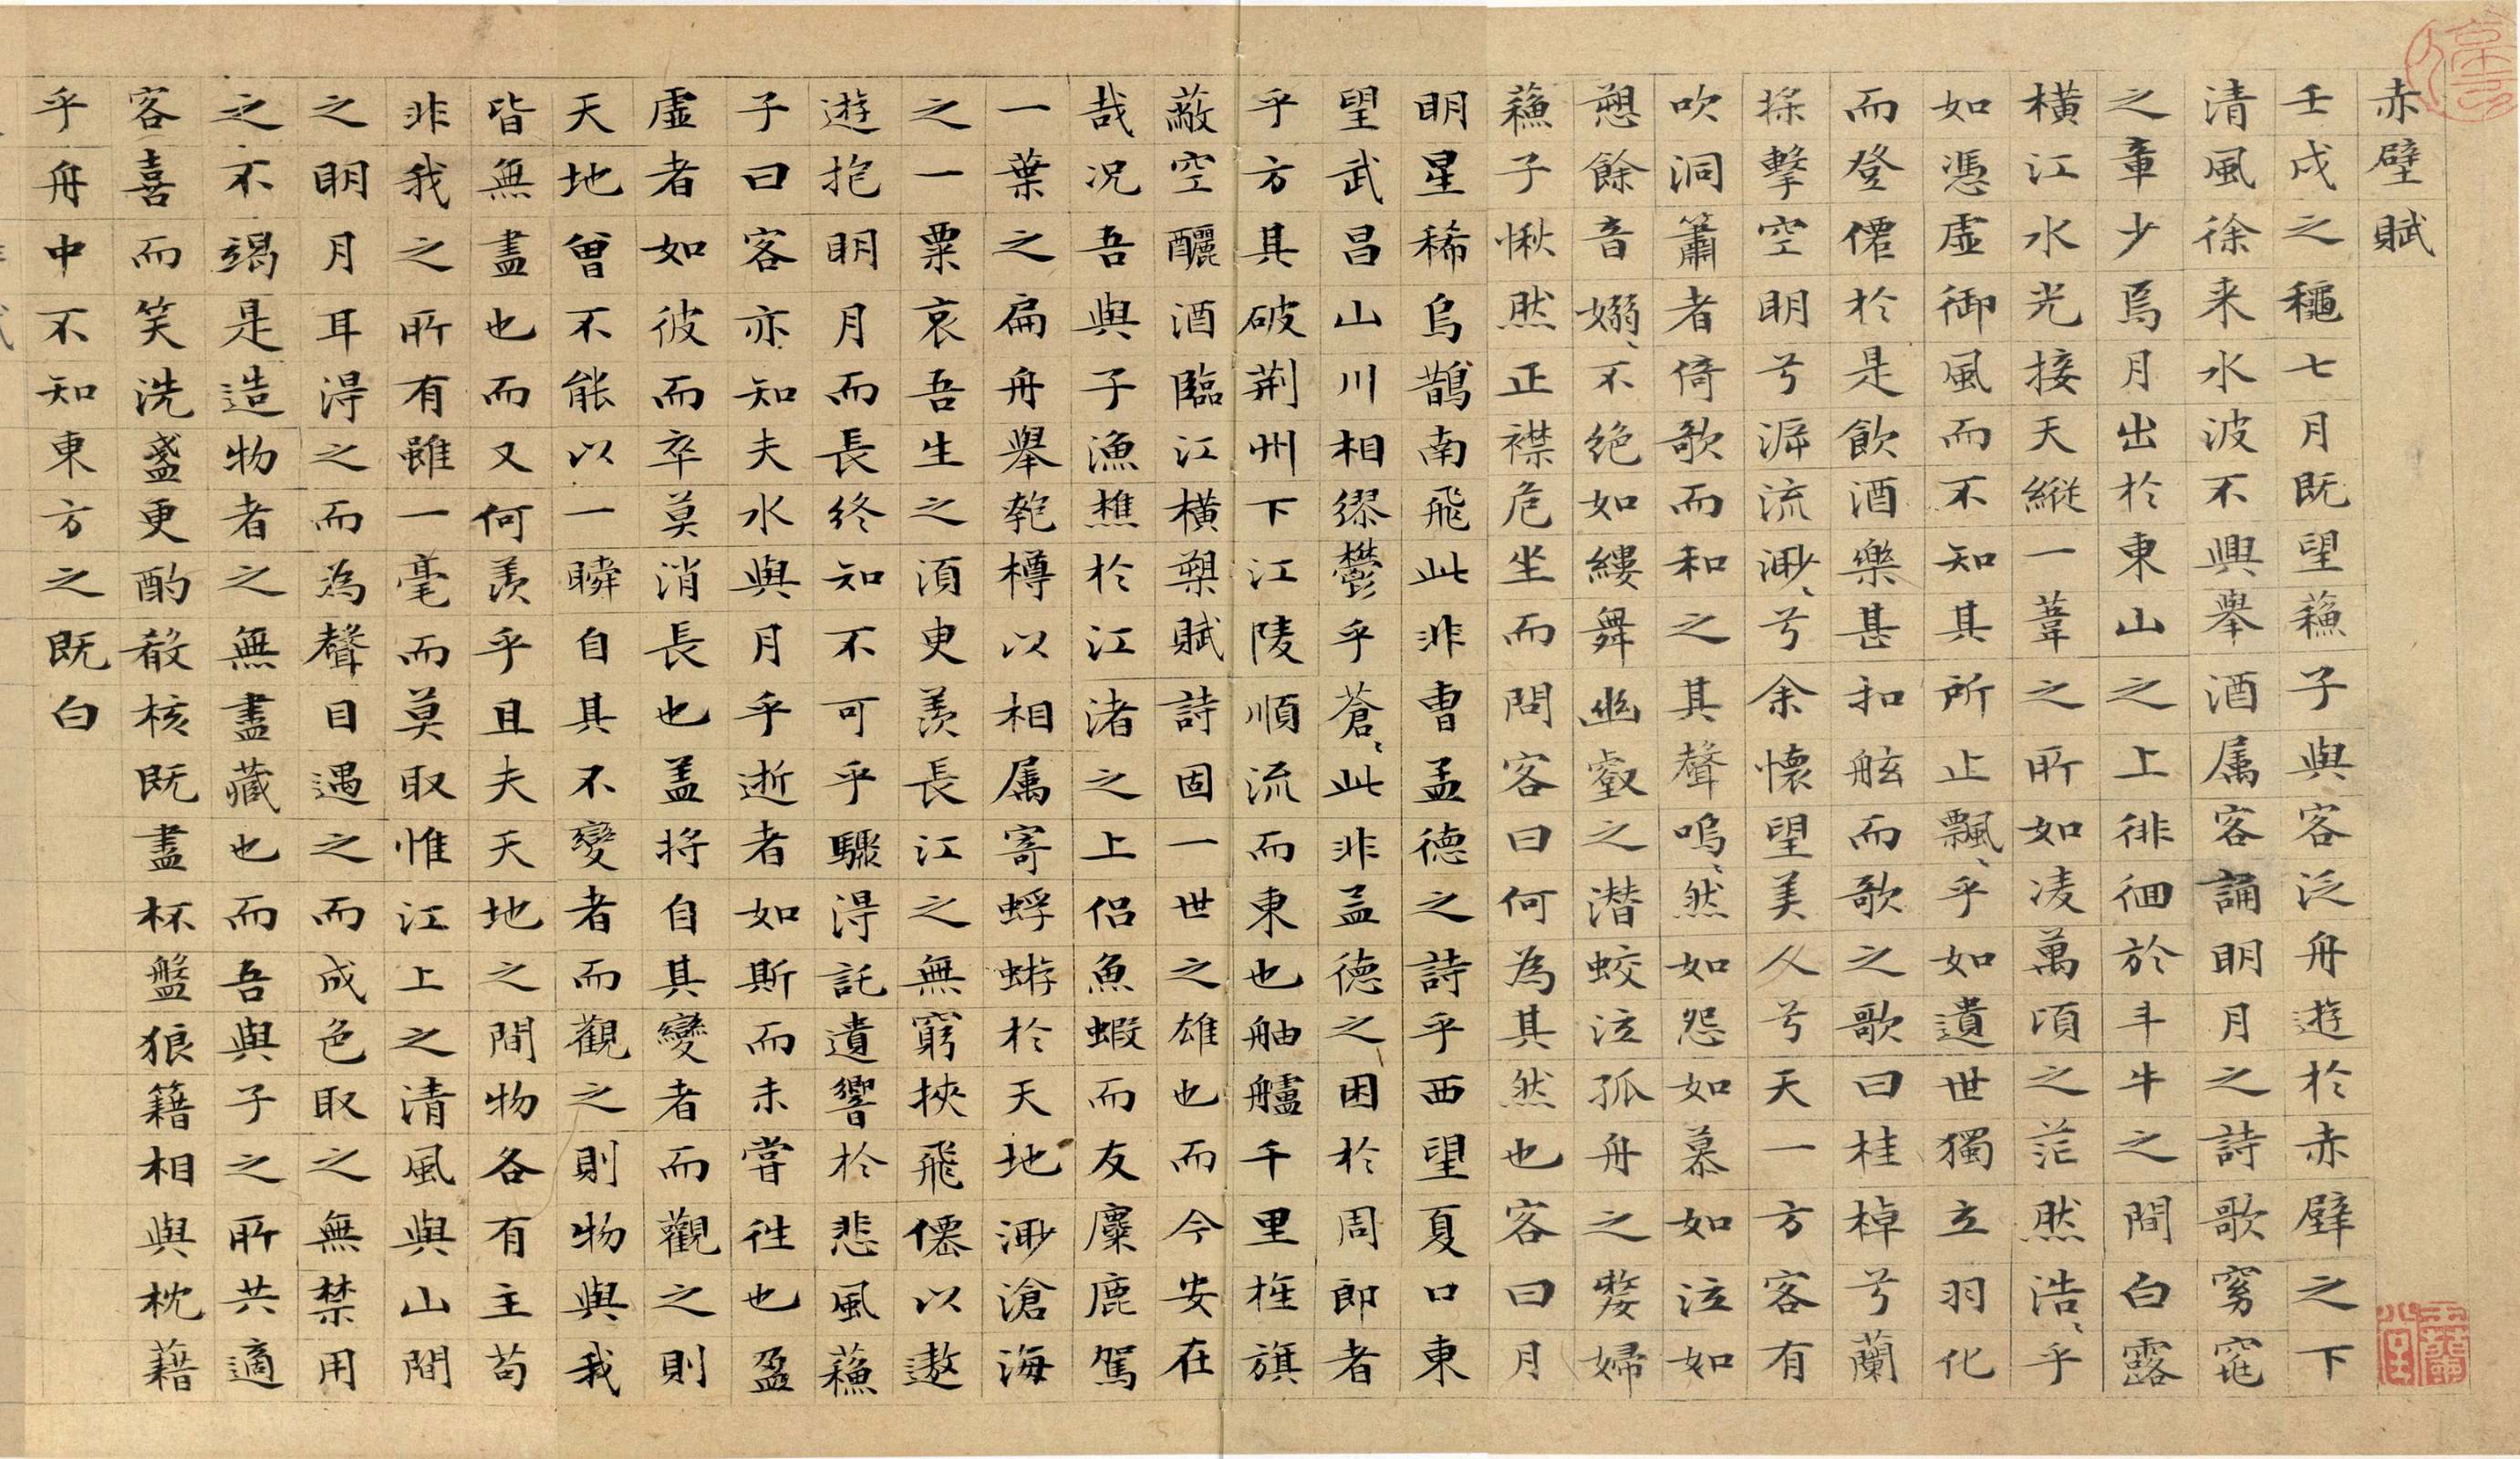 赤壁賦
壬戌之龝七月既望蘓子與客泛舟遊於赤壁之下
清風徐来水波不興舉酒属客誦明月之詩歌窈窕
之章少焉月出於東山之上徘徊於斗牛之間白露
橫江水光接天縱一葦之所如凌萬頃之茫然浩〻乎
如憑虛御風而不知其所止飄〻乎如遺世獨立羽化
而登僊於是飲酒樂甚扣舷而歌之歌曰桂棹兮蘭
槳擊空明兮泝流渺〻兮余懷望美人兮天一方客有
吹洞簫者倚歌而和之其聲嗚〻然如怨如慕如泣如
愬餘音嫋〻不絕如縷舞幽壑之潛蛟泣孤舟之嫠婦
蘓子愀然正襟危坐而問客曰何為其然也客曰月
明星稀烏鵲南飛此非曹孟德之詩乎西望夏口東
望武昌山川相繆鬱乎蒼〻此非孟德之困於周郎者
乎方其破荆州下江陵順流而東也舳艫千里旌旗
蔽空釃酒臨江橫槊賦詩固一世之雄也而今安在
哉况吾與子漁樵於江渚之上侣魚蝦而友麋鹿駕
一葉之扁舟舉匏樽以相属寄蜉蝣於天地渺滄海
之一粟哀吾生之須臾羨長江之無窮挾飛僊以遨
遊抱明月而長終知不可乎驟得託遺響於悲風蘓
子曰客亦知夫水與月乎逝者如斯而未嘗往也盈
虛者如彼而卒莫消長也盖將自其變者而觀之則
天地曾不能以一瞬自其不變者而觀之則物與我
皆無盡也而又何羨乎且夫天地之間物各有主苟
非我之所有雖一毫而莫取惟江上之清風與山間
之明月耳得之而為聲目遇之而成色取之無禁用
之不竭是造物者之無盡藏也而吾與子之所共適
客喜而笑洗盞更酌殽核既盡杯盤狼籍相與枕藉
乎舟中不知東方之既白